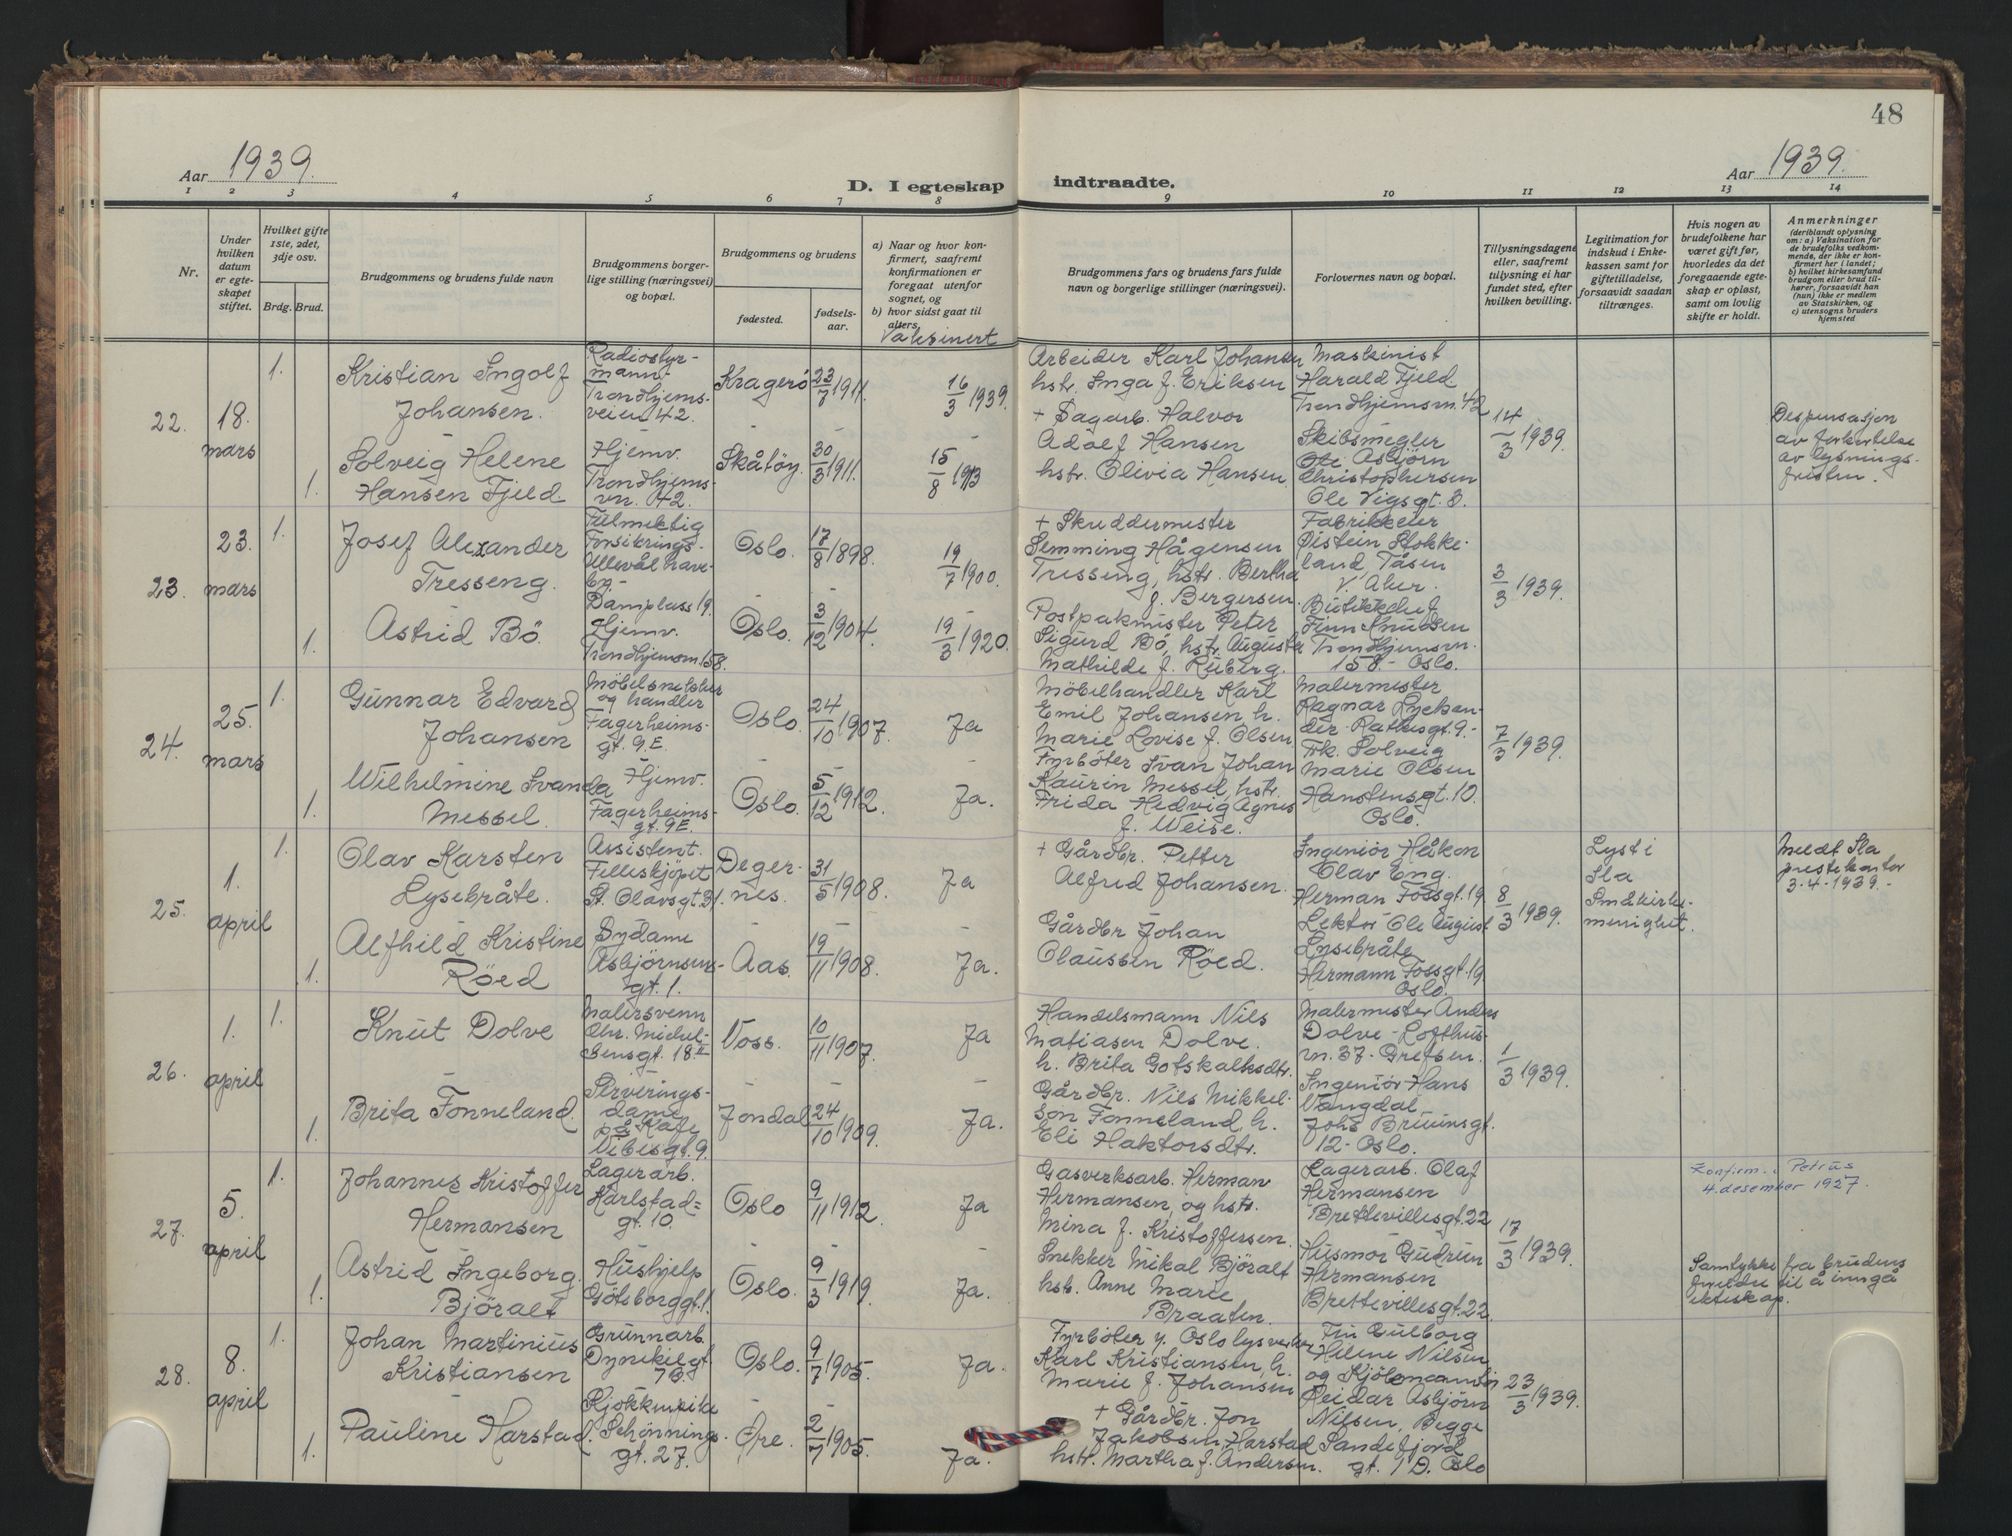 48
Aar 1939.
D. I egteskap indtraadte.
Aar 1939.
1 2 3 4 5 6 7 8 9 10 11 12 13 14
Nr.
Under hvilken datum er egteskapet stiftet.
Hvilket gifte 1ste, 2det, 3dje osv.
Brdg. Brud.
Brudgommens og brudens fulde navn
Brudgommens borgerlige stilling (næringsvei) og bopæl.
Brudgommens og brudens
fødested.
fødselsaar.
a) Naar og hvor konfirmert, saafremt konfirmationen er foregaat utenfor sognet, og
b) hvor sidst gaat til alters.
Vaksinert
Brudgommens fars og brudens fars fulde navn og borgerlige stillinger (næringsvei).
Forlovernes navn og bopæl.
Tillysningsdagene eller, saafremt tillysning ei har fundet sted, efter hvilken bevilling.
Legitimation for indskud i Enkekassen samt for giftetilladelse, forsaavidt saadan tiltrænges.
Hvis nogen av brudefolkene har været gift før, hvorledes da det foregaaende egteskap er opløst, samt om lovlig skifte er holdt.
Anmerkninger
(deriblandt oplysning om: a) Vaksination for de brudefolks vedkommende, der ikke er konfirmert her i landet;
b) hvilket kirkesamfund brudgom eller brud tilhører, forsaavidt han (hun) ikke er medlem av Statskirken, og
c) utensogns bruders hjemsted
22.
18.
mars
1.
Kristian Ingolf
Johansen.
Radiostyr-
mann.
Trondhjems-
veien 42.
Kragerø
23/7 1911.
16/3 1939.
Arbeider Karl Johansen
hstr. Inga f. Eriksen
Maskinist
Harald Fjeld
Trondhjemsvn. 42
14/3 1939.
1.
Solveig Helene
Hansen Fjeld
Hjemv.
Trondhjems-
vn. 42.
Skåtöy.
30/3 1911.
15/8 1913
+ Sagarb. Halvor
Adolf Hansen
hstr. Olivia Hansen
Skibsmegler
Ole Asbjörn
Christophersen
Ole Vigsgt. 3.
Dispensasjon
av forkortelse
av lysnings-
fristen.
23.
23.
mars
1.
Josef Alexander
Tresseng.
Fullmektig
Forsikrings-
Ullevål have-
by-
Damplass 19.
Oslo.
17/8 1898.
19/7 1900.
+ Skreddermester
Semming Hågensen
Tresseng, hstr. Bertha
f. Bergersen.
Fabrikkeier
Øistein Stokke-
land, Tåsen
V. Aker.
3/3 1939.
1.
Astrid Bö.
Hjemv.
Trondhjemsvn. 158.
Oslo.
3/12 1904.
19/3 1920.
Postpakmester Peter
Sigurd Bö, hstr. Auguste
Mathilde f. Ruberg.
Butikksjef
Finn Knudsen
Trondhjemsvn.
158 - Oslo.
24.
25.
mars
1.
Gunnar Edvard
Johansen
Möbelsnekker
og handler
Fagerheims-
gt. 9. E.
Oslo.
24/10 1907.
Ja
Möbelhandler Karl
Emil Johansen h.
Marie Lovise f. Olsen
Malermester
Ragnar Lycken-
der. Rathesgt. 9.-
7/3 1939.
1.
Wilhelmine Svanda
Messel.
Hjemv.
Fagerheims-
gt. 9E.
Oslo
5/12 1912.
Ja.
Fyrböter Svan Johan
Kaurin Messel, hstr.
Frida Hedvig Agnes
f. Weise.
Frk. Solveig
Marie Olsen
Hansteensgt. 10.
Oslo.
25.
1.
april
1.
Olav Karsten
Lysebråte.
Assistent.
Felleskjöpet
St. Olavsgt. 31.
Deger-
nes.
31/5 1908.
Ja
+ Gårdbr. Petter
Alfred Johansen.
Ingeniör Håkon
Olav Eng.
Herman Fossgt. 19
8/3 1939.
Lyst i
Ila
Småkirke-
menighet.
Meldt Ila
prestekontor
3.4-1939.-
1.
Alfhild Kristine
Röed
Sydame
Asbjörnsens-
gt. 1.
Aas.
19/11 1908.
Ja.
Gårdbr. Johan
Claussen Röed.
Lektor Ole August
Lysebråte
Hermann Fossgt. 19
Oslo.
26.
1.
april
1.
Knut Dolve
Malersvenn
Chr. Michel-
sensgt. 18 II
Voss.
10/11 1907.
Ja
Handelsmann Nils
Matiasen Dolve.
h. Brita Gotskalksdtr.
Malermester Anders
Dolve - Lofthus-
vn. 37 - Grefsen.
1/3 1939.
1.
Brita Fonneland
Serverings-
dame
på Kafe
Vibesgt. 9.
Jondal
24/10 1909.
Ja.
Gårdbr. Nils Mikkel-
son Fonneland, h.
Eli Haktorsdtr.
Ingeniör Hans
Vangdal
Johs Bruunsgt.
12 - Oslo.
27.
5.
april
1.
Johannes Kristoffer
Hermansen
Lagerarb.
Karlstad-
gt. 10.
Oslo
9/11 1912.
Ja
Gasverksarb. Herman
Hermansen, og hstr.
Mina f. Kristoffersen.
Lagerarb. Olaf
Hermansen
Brettevillesgt. 22
17/3 1939.
Konfirm. i Petrus
4. desember 1927.
1.
Astrid Ingeborg
Björalt
Hushjelp
Götsborggt. 1.
Oslo.
9/3 1919.
Ja.
Snekker Mikal Björalt
hstr. Anne Marie
Braaten.
Husmor Gudrun
Hermansen
Brettevillesgt. 22.
Samtykke fra brudens
foreldre til å inngå
ekteskap.
28.
8.
april
1.
Johan Martinius
Kristiansen
Grunnarb.
Dynekilgt.
7B.
Oslo.
9/7 1905.
Ja.
Fyrböter v. Oslo lysverker
Karl Kristiansen, h.
Marie f. Johansen
Fru Gulborg
Helene Nilsen
23/3 1939.
1.
Pauline Harstad.
Kjökkenpike
Schönnings-
gt. 27.
Öre.
2/7 1905.
Ja.
+ Gårdbr. Jon
Jakobsen Harstad
hstr. Martha f. Andersen.
Reidar Asbjörn
Nilsen, Begge
Sandefjord
gt. 1 D. Oslo